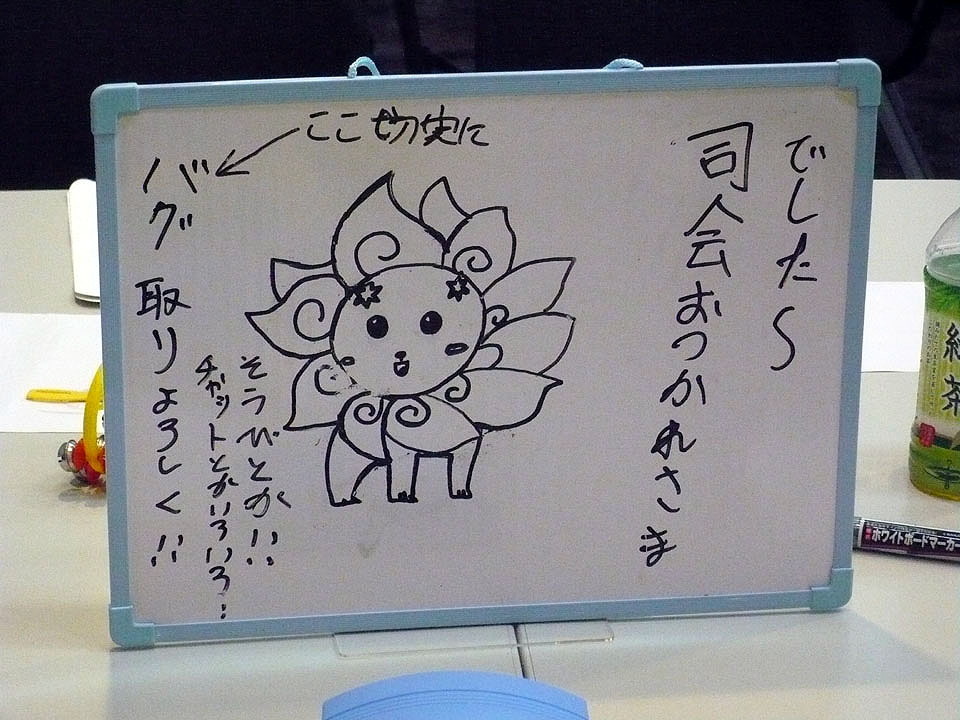 司会おつかれさま
でした〜
ここ切実に
バグ取りよろしく!!
そうびとか!!
チャットとかいろいろ!
緑茶
ホワイトボードマーカー